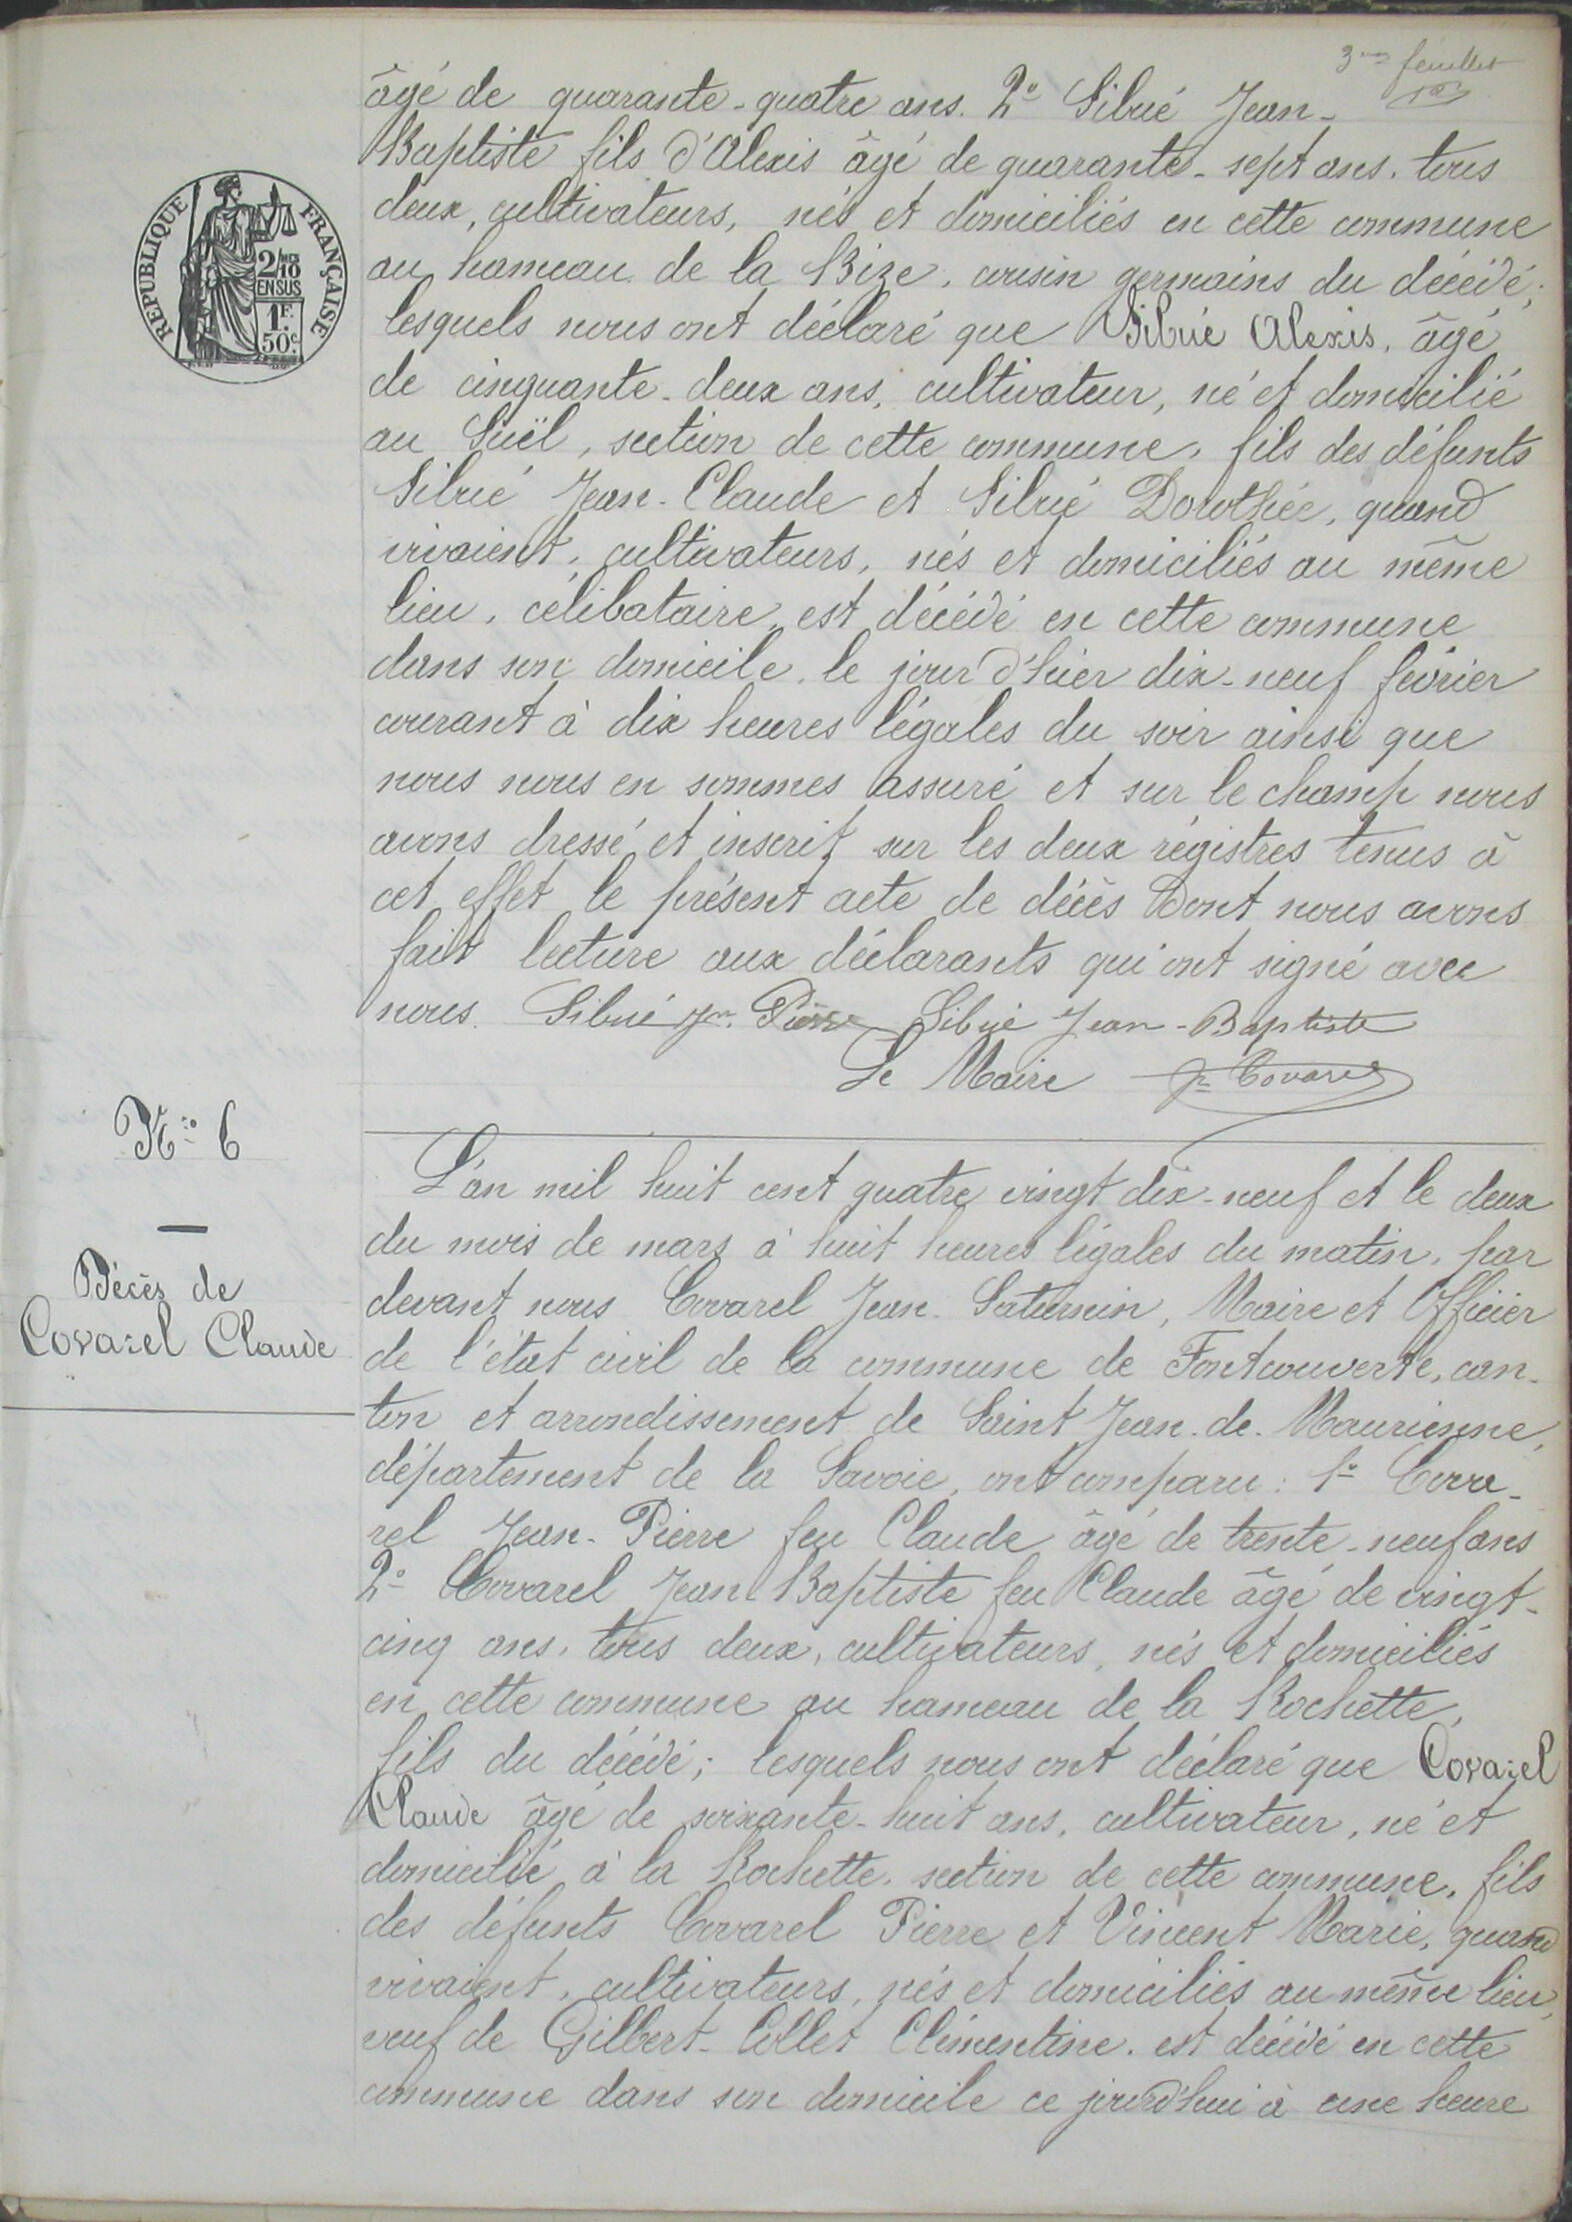 3me feuillet
âgé de quarante-quatre ans. 2° Sibué Jean-
Baptiste fils d'Alexis âgé de quarante-sept ans, tous
deux, cultivateurs, nés et domiciliés en cette commune
au hameau de la Bize, cousin germains du décédé;
lesquels nous ont déclaré que Sibué Alexis, âgé
de cinquante-deux ans, cultivateur, né et domicilié
au Suël, section de cette commune, fils des défunts
Sibué Jean-Claude et Sibué Dorothée, quand
vivaient, cultivateurs, nés et domiciliés au même
lieu, célibataire, est décédé en cette commune
dans son domicile, le jour d'hier dix-neuf février
courant à dix heures légales du soir ainsi que
nous nous en sommes assuré et sur le champ nous
avons dressé et inscrit sur les deux régistres tenus à
cet effet le présent acte de décès dont nous avons
fait lecture aux déclarants qui ont signé avec
nous. Sibué Jn Pierre Sibué Jean-Baptiste
Le Maire Jn Covarel
REPUBLIQUE FRANÇAISE
2/10 EN SUS
1F. 50c.
N° 6
Décès de
Covarel Claude
L'an mil huit cent quatre vingt dix-neuf et le deux
du mois de mars à huit heures légales du matin, par
devant nous Covarel Jean-Saturnin, Maire et Officier
de l'état civil de la commune de Fontcouverte, can-
ton et arrondissement de Saint Jean-de-Maurienne,
département de la Savoie, ont comparu: 1° Cova-
rel Jean-Pierre feu Claude âgé de trente-neuf ans
2° Covarel Jean Baptiste feu Claude âgé de vingt-
cinq ans, tous deux, cultivateurs, nés et domiciliés
en cette commune au hameau de la Rochette,
fils du décédé; lesquels nous ont déclaré que Covarel
Claude âgé de soixante-huit ans, cultivateur, né et
domicilié à la Rochette, section de cette commune, fils
des défunts Covarel Pierre et Vincent Marie, quand
vivaient, cultivateurs, nés et domiciliés au même lieu,
veuf de Gilbert-Collet Clémentine, est décédé en cette
commune dans son domicile ce jourd'hui à une heure